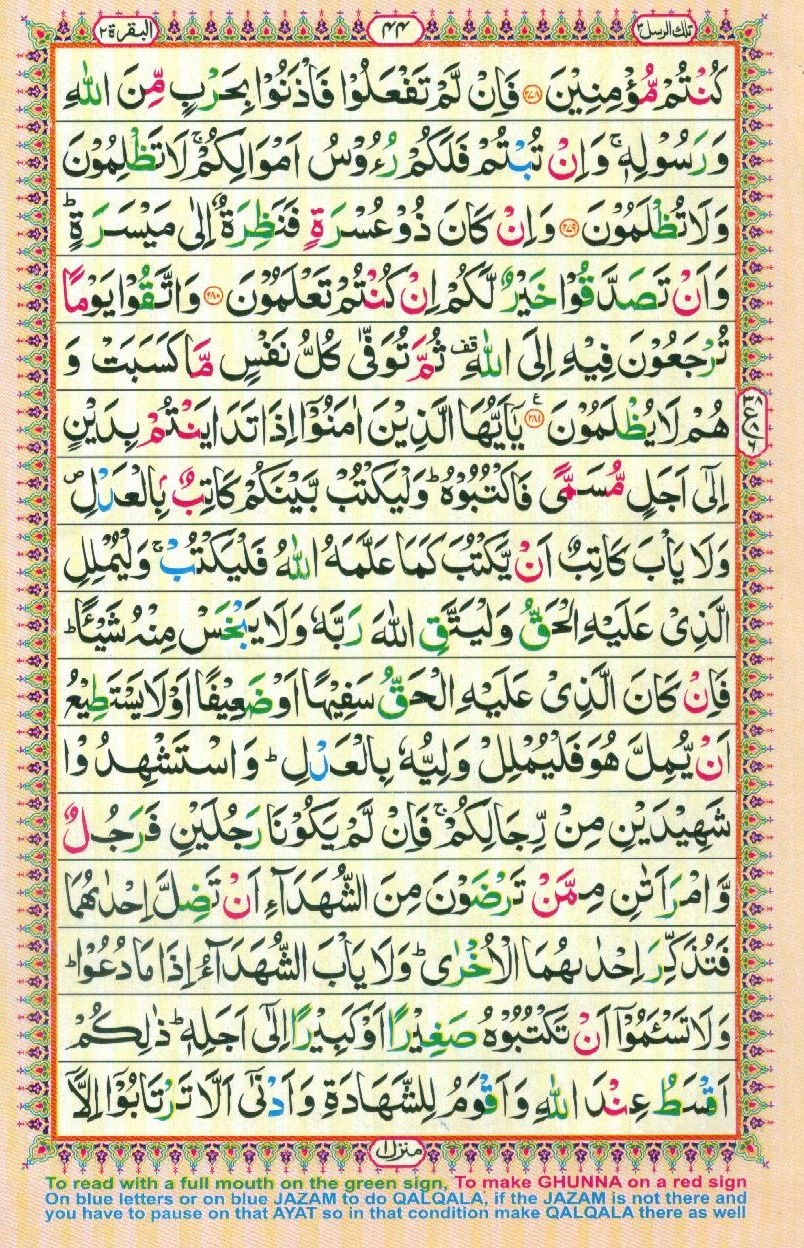 تلك الرسل ٣ ۴۴ البقرة ٢
كُنْتُمْ مُّؤْمِنِيْنَ ﴿۲۷۸﴾ فَاِنْ لَّمْ تَفْعَلُوْا فَاْذَنُوْا بِحَرْبٍ مِّنَ اللّٰهِ
وَرَسُوْلِهٖ ۚ وَاِنْ تُبْتُمْ فَلَكُمْ رُءُوْسُ اَمْوَالِكُمْ ۚ لَا تَظْلِمُوْنَ
وَلَا تُظْلَمُوْنَ ﴿۲۷۹﴾ وَاِنْ كَانَ ذُوْ عُسْرَةٍ فَنَظِرَةٌ اِلٰى مَيْسَرَةٍ ؕ
وَاَنْ تَصَدَّقُوْا خَيْرٌ لَّكُمْ اِنْ كُنْتُمْ تَعْلَمُوْنَ ﴿۲۸۰﴾ وَاتَّقُوْا يَوْمًا
تُرْجَعُوْنَ فِيْهِ اِلَى اللّٰهِ ۖ ثُمَّ تُوَفّٰى كُلُّ نَفْسٍ مَّا كَسَبَتْ وَ
هُمْ لَا يُظْلَمُوْنَ ﴿۲۸۱﴾ يٰۤاَيُّهَا الَّذِيْنَ اٰمَنُوْۤا اِذَا تَدَايَنْتُمْ بِدَيْنٍ
اِلٰۤى اَجَلٍ مُّسَمًّى فَاكْتُبُوْهُ ؕ وَلْيَكْتُبْ بَّيْنَكُمْ كَاتِبٌۢ بِالْعَدْلِ ۪
وَلَا يَاْبَ كَاتِبٌ اَنْ يَّكْتُبَ كَمَا عَلَّمَهُ اللّٰهُ فَلْيَكْتُبْ ۚ وَلْيُمْلِلِ
الَّذِيْ عَلَيْهِ الْحَقُّ وَلْيَتَّقِ اللّٰهَ رَبَّهٗ وَلَا يَبْخَسْ مِنْهُ شَيْـًٔا ؕ
فَاِنْ كَانَ الَّذِيْ عَلَيْهِ الْحَقُّ سَفِيْهًا اَوْ ضَعِيْفًا اَوْ لَا يَسْتَطِيْعُ
اَنْ يُّمِلَّ هُوَ فَلْيُمْلِلْ وَلِيُّهٗ بِالْعَدْلِ ؕ وَاسْتَشْهِدُوْا
شَهِيْدَيْنِ مِنْ رِّجَالِكُمْ ۚ فَاِنْ لَّمْ يَكُوْنَا رَجُلَيْنِ فَرَجُلٌ
وَّامْرَاَتٰنِ مِمَّنْ تَرْضَوْنَ مِنَ الشُّهَدَآءِ اَنْ تَضِلَّ اِحْدٰىهُمَا
فَتُذَكِّرَ اِحْدٰىهُمَا الْاُخْرٰى ؕ وَلَا يَاْبَ الشُّهَدَآءُ اِذَا مَا دُعُوْا ؕ
وَلَا تَسْـَٔمُوْۤا اَنْ تَكْتُبُوْهُ صَغِيْرًا اَوْ كَبِيْرًا اِلٰۤى اَجَلِهٖ ؕ ذٰلِكُمْ
اَقْسَطُ عِنْدَ اللّٰهِ وَاَقْوَمُ لِلشَّهَادَةِ وَاَدْنٰۤى اَلَّا تَرْتَابُوْۤا اِلَّاۤ
منزل ١
To read with a full mouth on the green sign, To make GHUNNA on a red sign
On blue letters or on blue JAZAM to do QALQALA, if the JAZAM is not there and
you have to pause on that AYAT so in that condition make QALQALA there as well